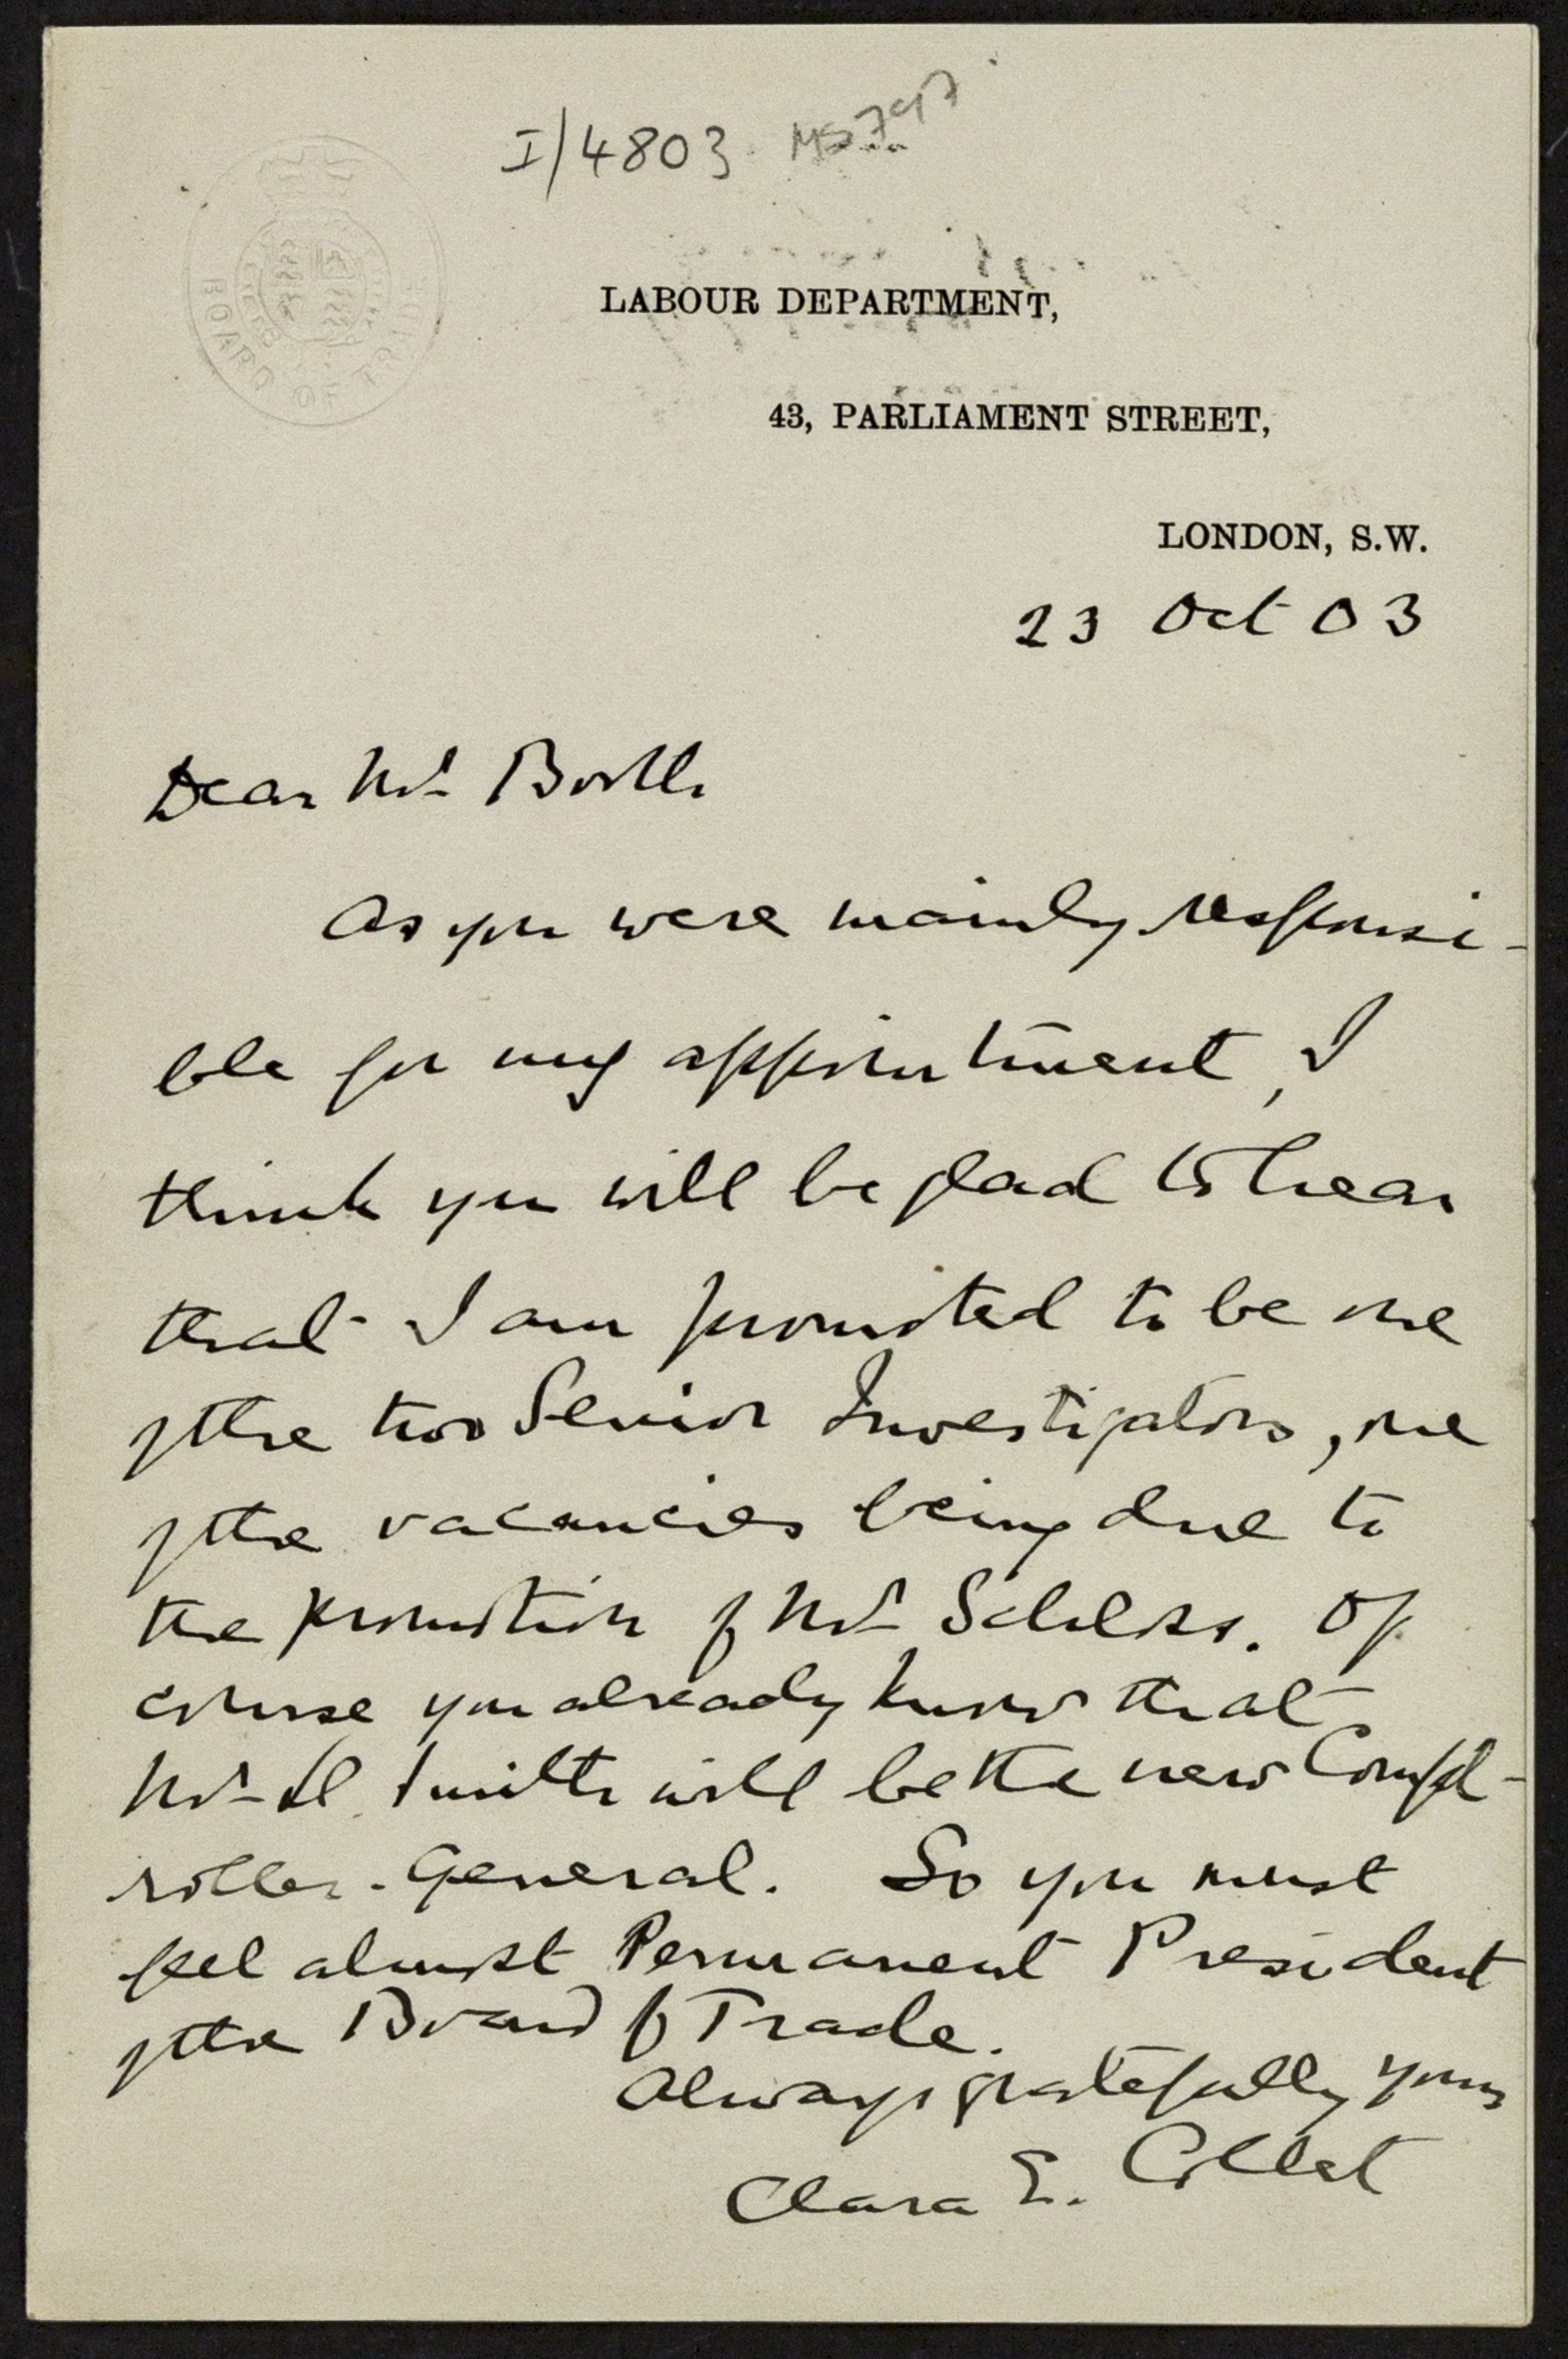 I/4803 MS797
BOARD OF TRADE
LABOUR DEPARTMENT,
43, PARLIAMENT STREET,
LONDON, S.W.
23 Oct 03
Dear Mr Booth
As you were mainly responsi-
ble for my appointment, I
think you will be glad to hear
that I am promoted to be one
of the two Senior Investigators, one
of the vacancies being due to
the promotion of Mr Schloss. Of
course you already know that
Mr Ll. Smith will be the new Compt-
roller-General. So you must
feel almost Permanent President
of the Board of Trade.
Always gratefully yours
Clara E. Collet